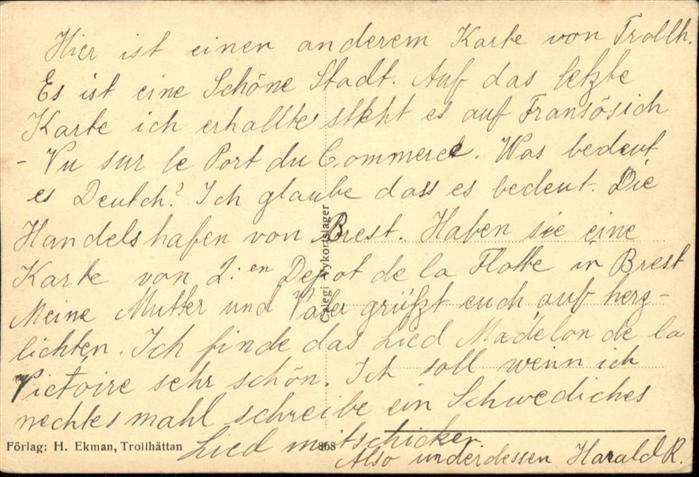 Hier ist einen anderem Karte von Trollh.
Es ist eine Schöne Stadt. Auf das letzte
Karte ich erhallte steht es auf Fransösich
- Vu sur le Port du Commerce. Was bedeut
es Deutch? Ich glaube dass es bedeut. Die
Handelshafen von Brest. Haben sie eine
Karte von 2:en Depot de la Flotte in Brest
Meine Mutter und Vater grüßt euch auf herz-
lichten. Ich finde das Lied Madelon de la
Victoire sehr schön. Ich soll wenn ich
nechtes mahl schreibe ein Schwediches
Lied mitschicken.
Also underdessen Harald R.
Förlag: H. Ekman, Trollhättan
868
Vykortslager